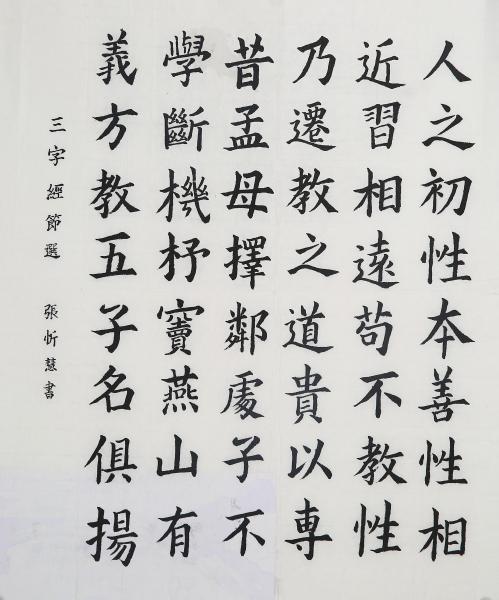 人之初性本善性相
近習相遠苟不教性
乃遷教之道貴以専
昔孟母擇鄰處子不
學斷機杼竇燕山有
義方教五子名俱揚
三字經節選 張忻慧書